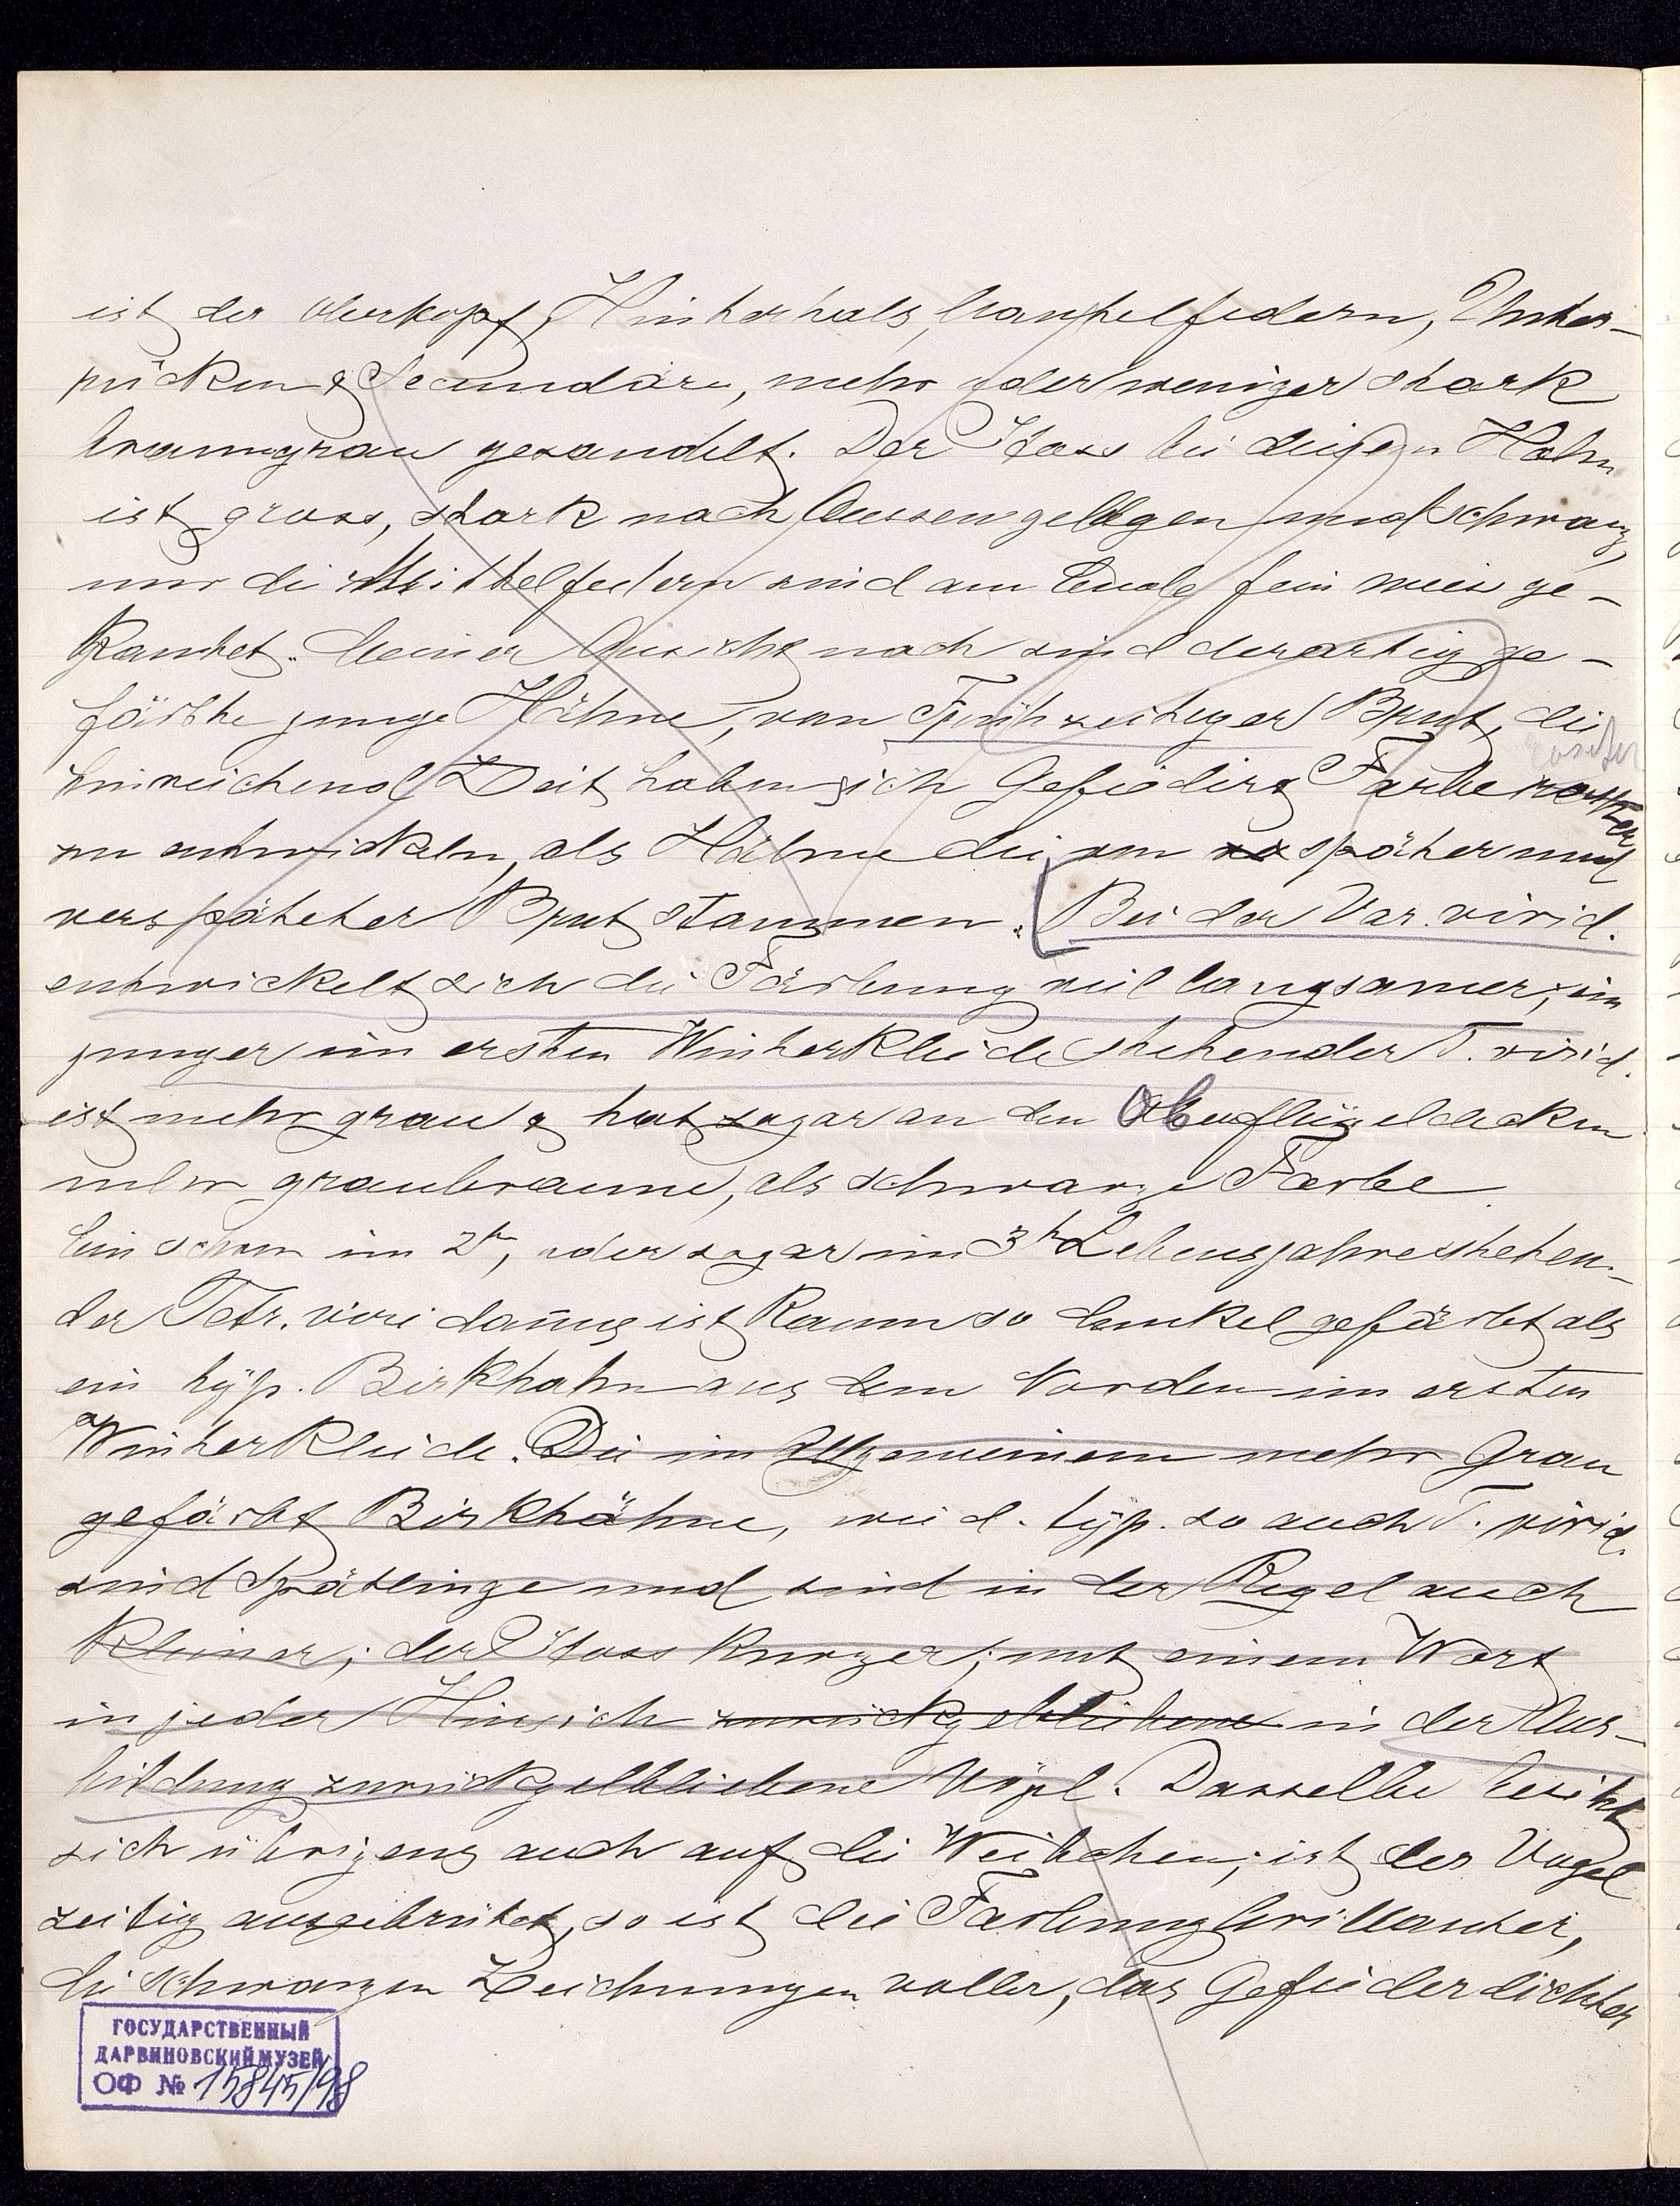 ist der Oberkopf, Hinterhals, Mantelfedern, Unter-
rücken & Secundäre, mehr oder weniger stark
braungrau gesandelt. Der Stoss bei diesem Hahn
ist gross, stark nach Aussen gebogen und schwarz,
nur die Mittelfedern sind am Ende fein weis ge-
kantet. Meiner Ansicht nach sind derartig ge-
färbte junge Hähne, von Frühzeitiger Brut, die
hinreichend Zeit haben sich Gefieders Farbe rascher
zu entwickeln, als Hähne die von später und
verspäteter Brut stammen. [Bei der Var. virid.
entwickelt sich die Färbung viel langsamer, ein
junger im ersten Winterkleide stehender T. virid.
ist mehr grau & hat sogar an den Oberflügeldecken
mehr graubraune, als schwarze Farbe.
Ein schon im 2t, oder sogar im 3t Lebensjahre stehen-
der Tetr. viridanus ist kaum so dunkel gefärbt als
ein typ. Birkhahn aus dem Norden im ersten
Winterkleide. Die im Allgemeinem mehr Grau
gefärbt Birkhähne, wie d. typ. so auch T. virid.
sind Spätlinge und sind in der Regel auch
Kleiner; der Stoss kurzer; mit einem Wort
in jeder Hinsich zurückgebliebene in der Aus-
bildung zurückgelbliebene Vögl. Dasselbe beziht
sich übrigens auch auf die Weibchen; ist der Vogel
zeitig ausgebrütet, so ist die Färbung brillanter,
die schwarzen Zeichnungen voller, das Gefieder dichter
ГОСУДАРСТВЕННЫЙ
ДАРВИНОВСКИЙ МУЗЕЙ
ОФ № 15845/98